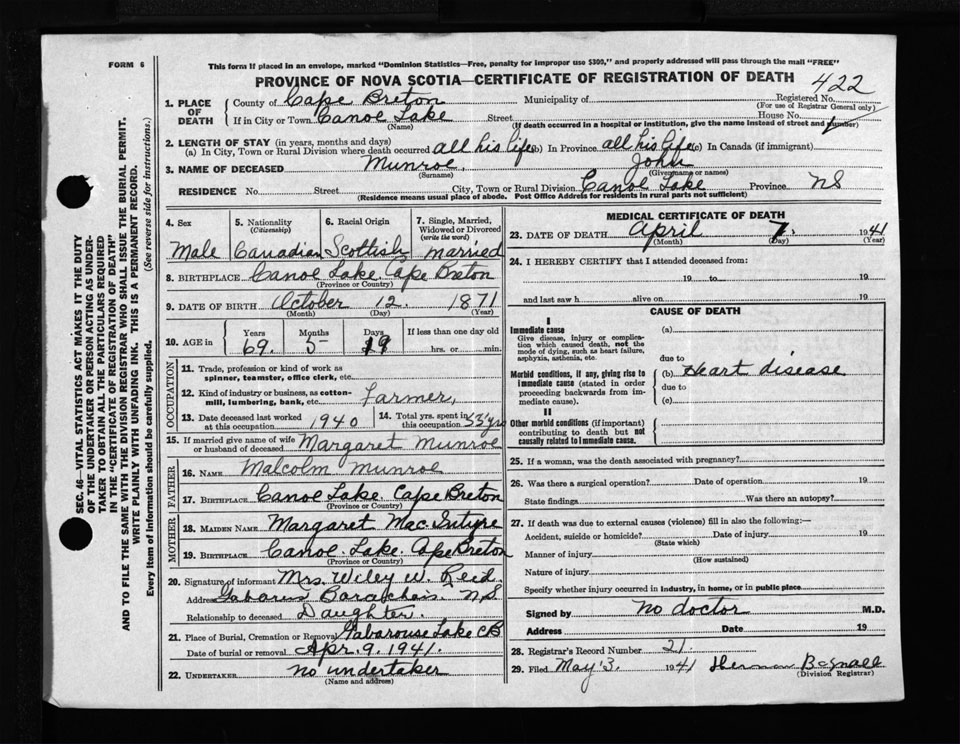 FORM 6
This form if placed in an envelope, marked "Dominion Statistics—Free, penalty for improper use $300," and properly addressed will pass through the mail "FREE"
PROVINCE OF NOVA SCOTIA—CERTIFICATE OF REGISTRATION OF DEATH
422
1. PLACE OF DEATH County of Cape Breton Municipality of Registered No.
(For use of Registrar General only)
If in City or Town Canoe Lake Street House No.
(Name) (If death occurred in a hospital or institution, give the name instead of street and number)
2. LENGTH OF STAY (in years, months and days)
(a) In City, Town or Rural Division where death occurred all his life (b) In Province all his life (c) In Canada (if immigrant)
3. NAME OF DECEASED Munroe, John
(Surname) (Given name or names)
RESIDENCE No. Street City, Town or Rural Division Canoe Lake Province NS
(Residence means usual place of abode. Post Office Address for residents in rural parts not sufficient)
4. Sex 5. Nationality (Citizenship) 6. Racial Origin 7. Single, Married, Widowed or Divorced (write the word)
Male Canadian Scottish married
8. BIRTHPLACE Canoe Lake Cape Breton
(Province or Country)
9. DATE OF BIRTH October 12. 1871
(Month) (Day) (Year)
10. AGE in Years Months Days If less than one day old
69. 5 19 hrs. or min.
OCCUPATION
11. Trade, profession or kind of work as spinner, teamster, office clerk, etc.
12. Kind of industry or business, as cotton-mill, lumbering, bank, etc. Farmer,
13. Date deceased last worked at this occupation 1940 14. Total yrs. spent in this occupation 53 yrs
15. If married give name of wife or husband of deceased Margaret Munroe
FATHER
16. NAME Malcolm Munroe
17. BIRTHPLACE Canoe Lake Cape Breton
(Province or Country)
MOTHER
18. MAIDEN NAME Margaret Mac Intyre
19. BIRTHPLACE Canoe Lake Cape Breton
(Province or Country)
20. Signature of informant Mrs. Wiley W. Reid.
Address Gabarus Barachois N.S
Relationship to deceased Daughter.
21. Place of Burial, Cremation or Removal Gabarouse Lake CB
Date of burial or removal Apr. 9. 1941.
22. UNDERTAKER no undertaker
(Name and address)
MEDICAL CERTIFICATE OF DEATH
23. DATE OF DEATH April 7. 1941
(Month) (Day) (Year)
24. I HEREBY CERTIFY that I attended deceased from:
19 to 19
and last saw h alive on 19
CAUSE OF DEATH
I
Immediate cause (a)
Give disease, injury or complication which caused death, not the mode of dying, such as heart failure, asphyxia, asthenia, etc.
due to
Morbid conditions, if any, giving rise to immediate cause (stated in order proceeding backwards from immediate cause).
(b) Heart disease
due to
(c)
II
Other morbid conditions (if important) contributing to death but not causally related to immediate cause.
25. If a woman, was the death associated with pregnancy?
26. Was there a surgical operation? Date of operation 19
State findings Was there an autopsy?
27. If death was due to external causes (violence) fill in also the following:—
Accident, suicide or homicide? Date of injury 19
(State which)
Manner of injury
(How sustained)
Nature of injury
Specify whether injury occurred in industry, in home, or in public place
Signed by no doctor M.D.
Address Date 19
28. Registrar's Record Number 21.
29. Filed May 3. 1941 Herman Bagnall
(Division Registrar)
SEC. 46—VITAL STATISTICS ACT MAKES IT THE DUTY
OF THE UNDERTAKER OR PERSON ACTING AS UNDER-
TAKER TO OBTAIN ALL THE PARTICULARS REQUIRED
IN THE "CERTIFICATE OF REGISTRATION OF DEATH"
AND TO FILE THE SAME WITH THE DIVISION REGISTRAR WHO SHALL ISSUE THE BURIAL PERMIT.
WRITE PLAINLY WITH UNFADING INK. THIS IS A PERMANENT RECORD.
Every item of information should be carefully supplied. (See reverse side for instructions.)